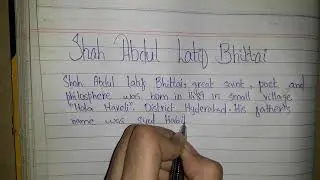 Shah Abdul Latif Bhittai
Shah Abdul Latif Bhittai great saint, poet and
was born in in small village
"Hala Haveli" District Hyderabad. His father's
name was syed Habi